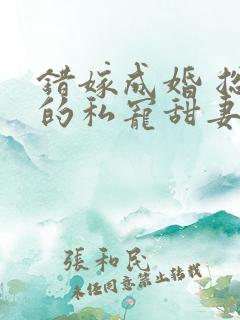 錯嫁成婚
的私寵甜妻
張和民
未经同意禁止转载